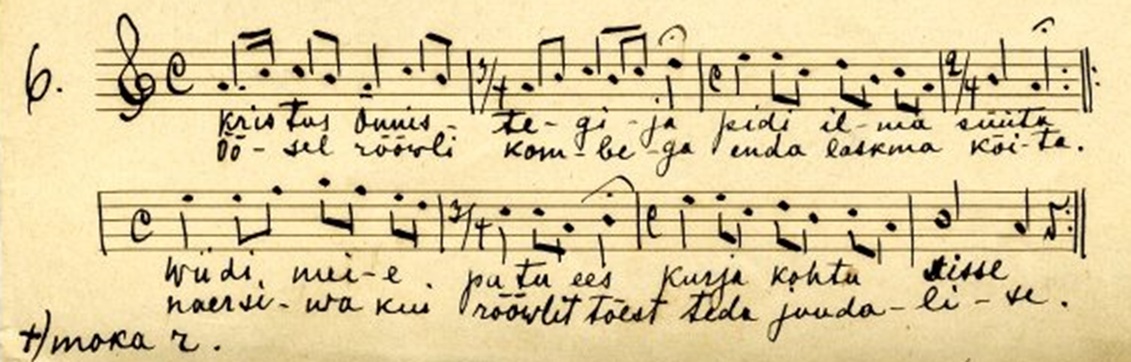 6.
kristus Õnnis- te-gi-ja pidi il-ma süüta
öö-sel rööwli kom-be-ga enda laskma köi-ta.
Wiidi, mei-e. patu ees kurja kohtu sisse
naersi-wa kui rööwlit tõest teda juuda-li-se.
+) moka r.